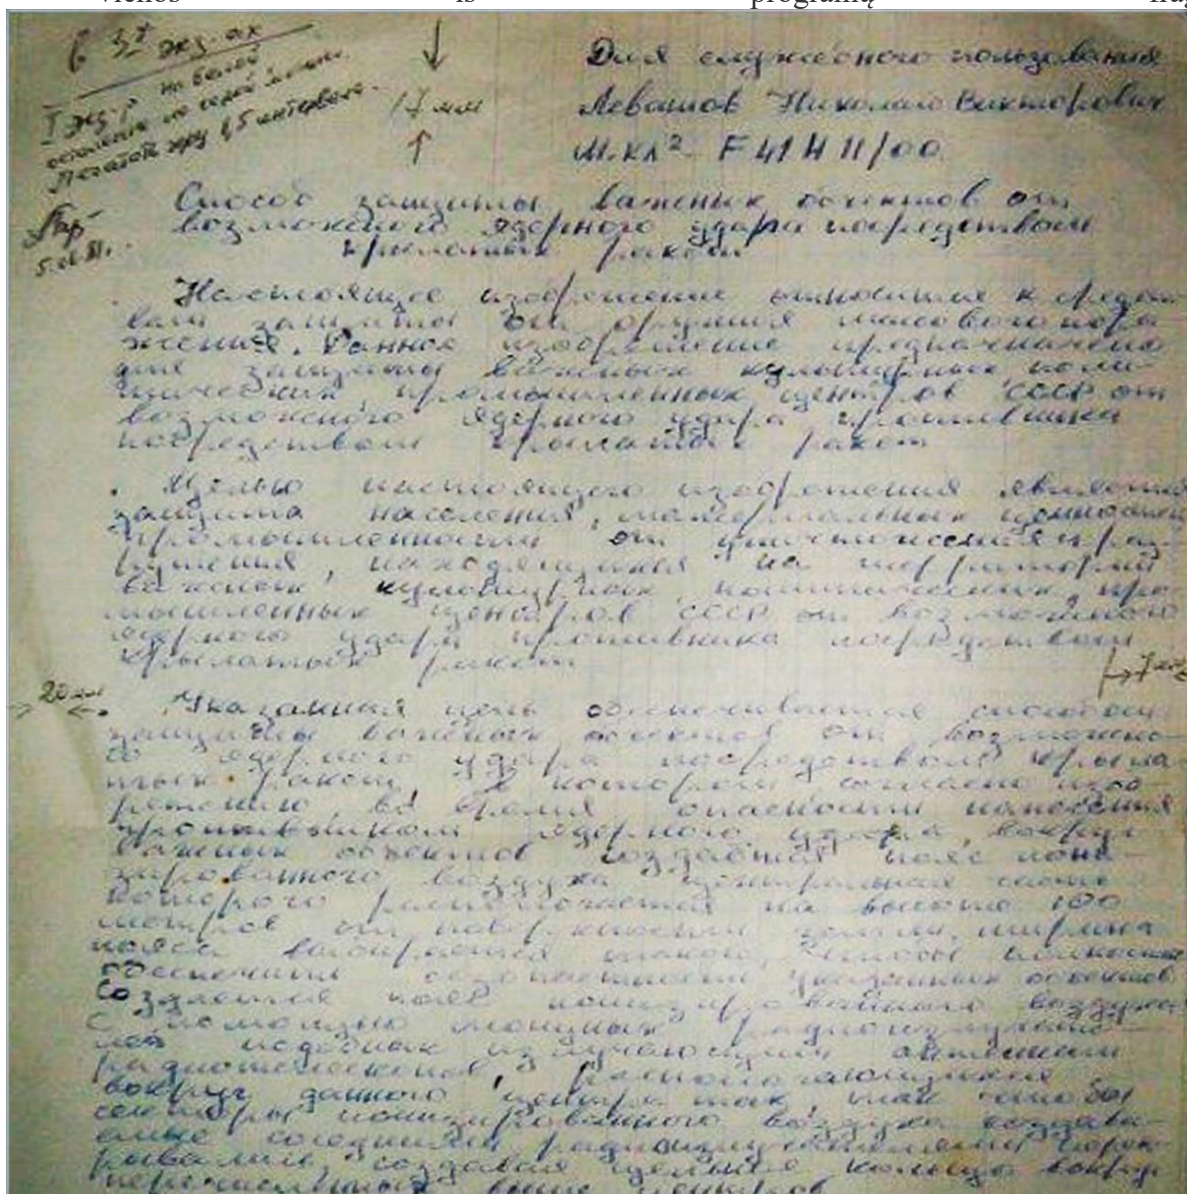 vienos iš programų
в 3х экз-ах
I экз-р на белой
17 мм
Для служебного пользования
Левашов Николай Викторович
М.кл² F 41 H 11/00
Способ защиты важных объектов от
возможного ядерного удара посредством
крылатых ракет
Настоящее изобретение относится к средст
вам защиты от оружия массового пора
жения. Данное изобретение предназначено
для защиты важных культурных, поли
тических, промышленных центров СССР от
возможного ядерного удара противника
посредством крылатых ракет
Целью настоящего изобретения является
защита населения, материальных ценностей
промышленности от уничтожения и раз
рушения, находящихся на территории
важных культурных, политических, про
мышленных центров СССР от возможного
ядерного удара противника посредством
крылатых ракет
7 мм
20 мм
Указанная цель обеспечивается способом
защиты важных объектов от возможно
го ядерного удара посредством крыла
тых ракет, в котором согласно изоб
ретению, во время опасности нанесения
противником ядерного удара, вокруг
важных объектов создаётся пояс иони
зированного воздуха центральная часть
которого располагается на высоте 100
метров от поверхности земли, ширина
пояса выбирается такого, чтобы полностью
обеспечить безопасность указанных объектов.
Создается пояс ионизированного воздуха
с помощью мощных радиоизлучате
лей подобных излучающим антеннам
радиотелескопов, располагающихся
вокруг данного центра так, чтобы
секторы ионизированного воздуха создава
емые соседними радиоизлучателями перек
рывались, создавая цельные кольца вокруг
перечисленных выше центров